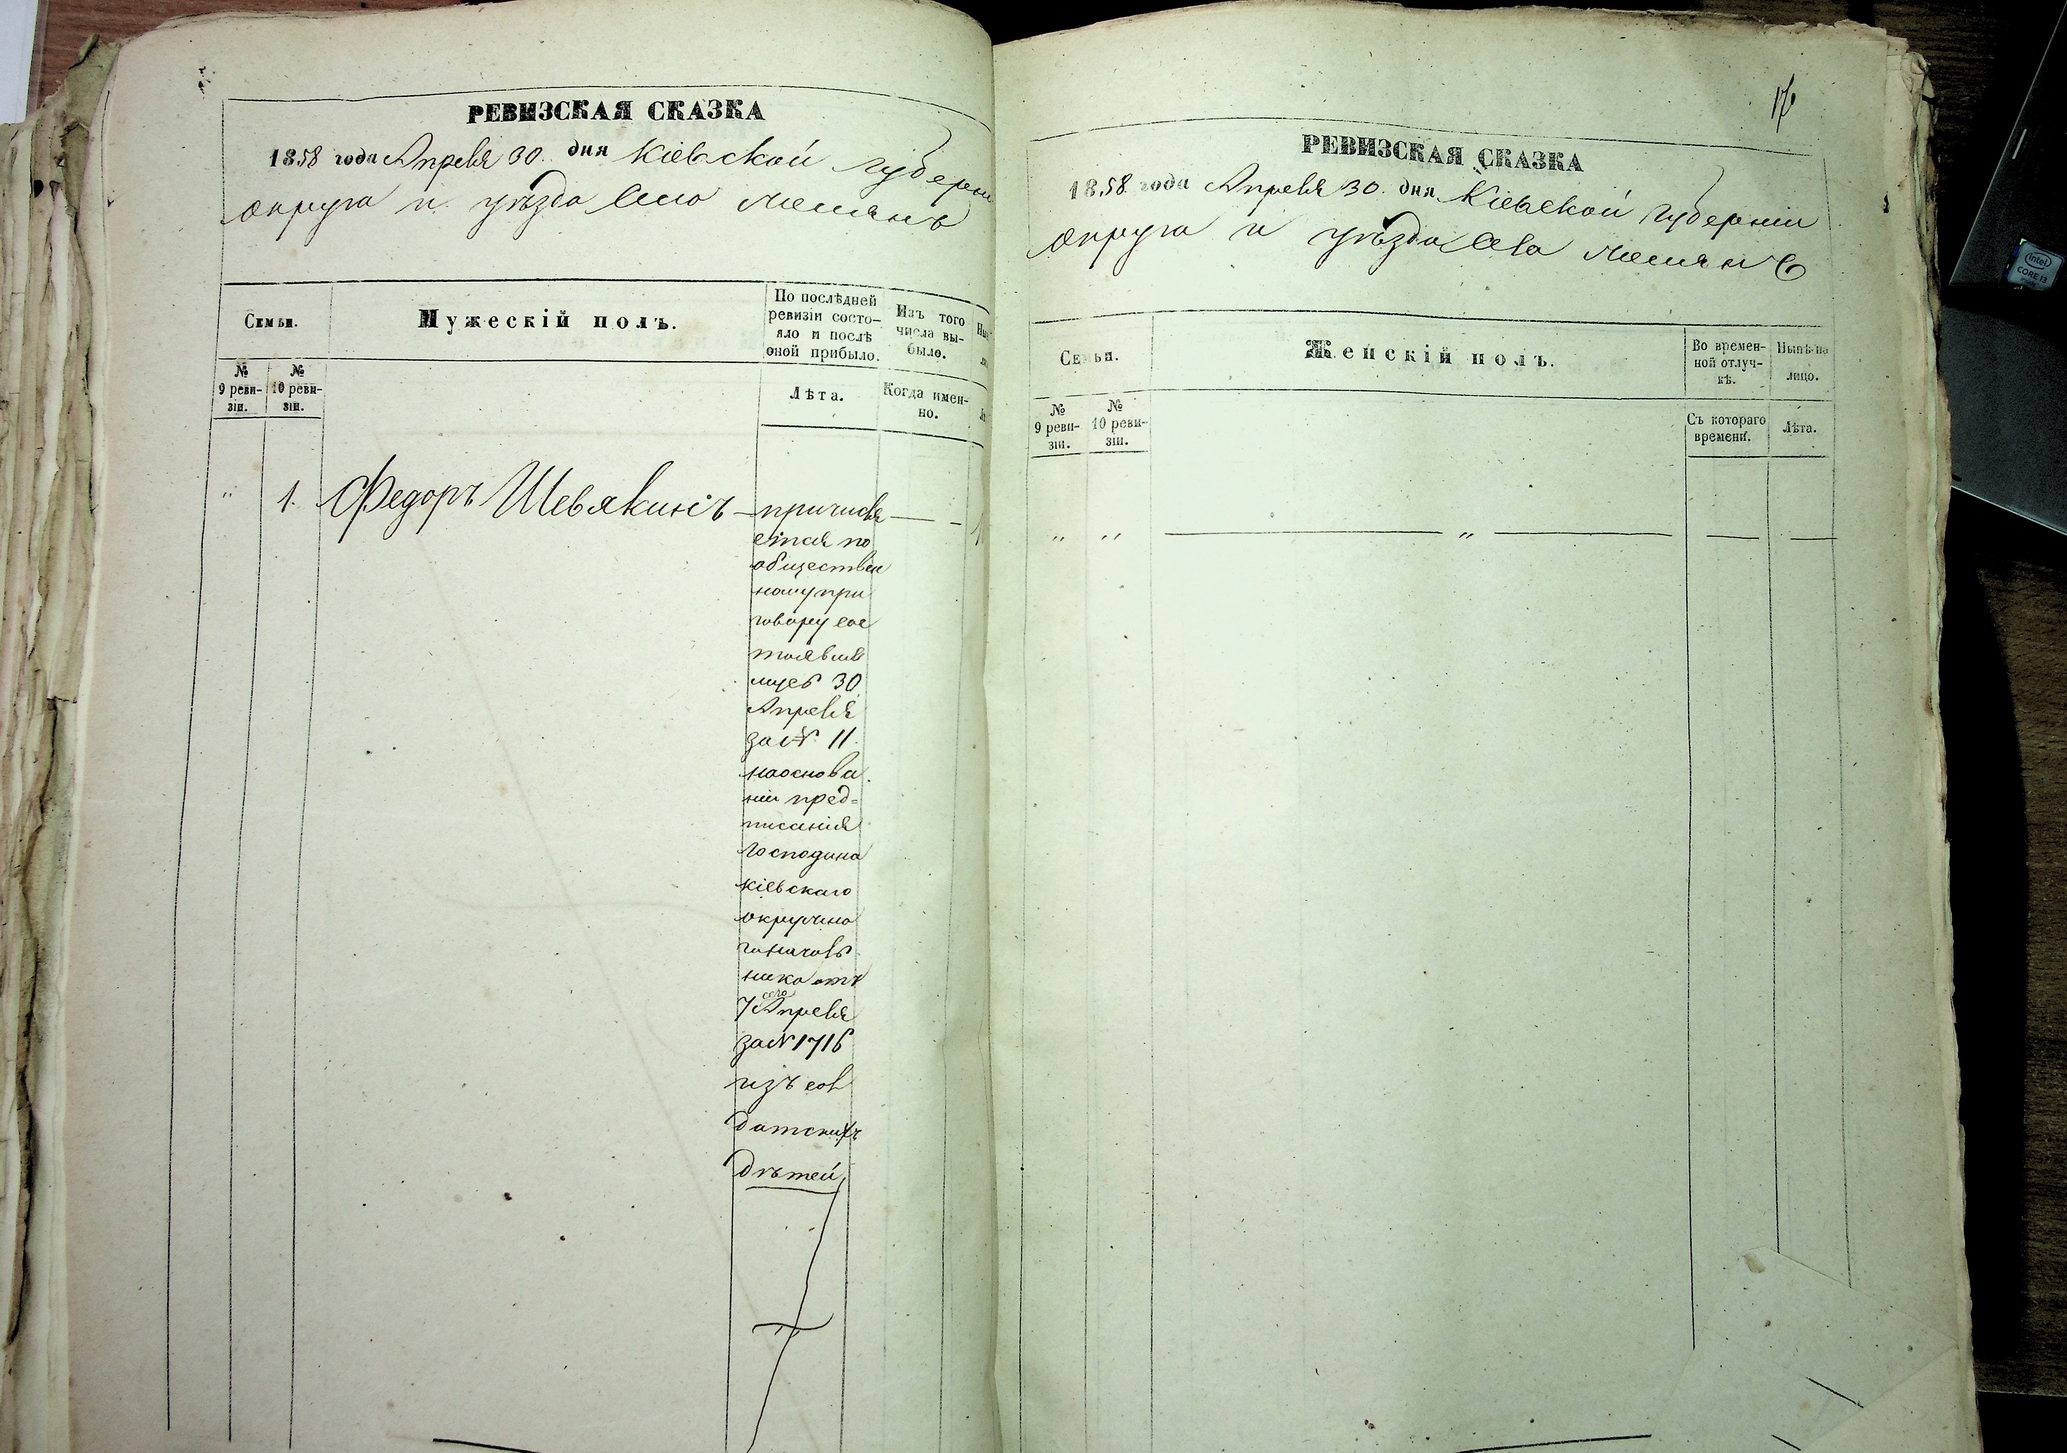 РЕВИЗСКАЯ СКАЗКА
1858 года Апреля 30 дня Кіевской губерні
округа и уѣзда Село
Семьи.
Мужескій полъ.
По послѣдней
ревизіи состо-
яло и послѣ
оной прибыло.
Изъ того
числа вы-
было.
№
9 реви-
зіи.
№
10 реви-
зіи.
Лѣта.
Когда имен-
но.
" 1. Федоръ Шевякинъ — причисля —
ется по
обществен
ному при
говору сос
тоявше
муся 30
Апреля
за № 11.
на основа
ніи пред=
писанія
Господина
Кіевскаго
окружна
го началь
ника отъ
7 сего Апреля
за № 1716
изъ сол
датскихъ
дѣтей
17
РЕВИЗСКАЯ СКАЗКА
1858 года Апреля 30 дня Кіевской губерніи
округа и уѣзда Села
Семьи.
Женскій полъ.
Во времен-
ной отлуч-
кѣ.
Нынѣ на
лицо.
№
9 реви-
зіи.
№
10 реви-
зіи.
Съ котораго
времени.
Лѣта.
" " — " — — —
intel
CORE i3